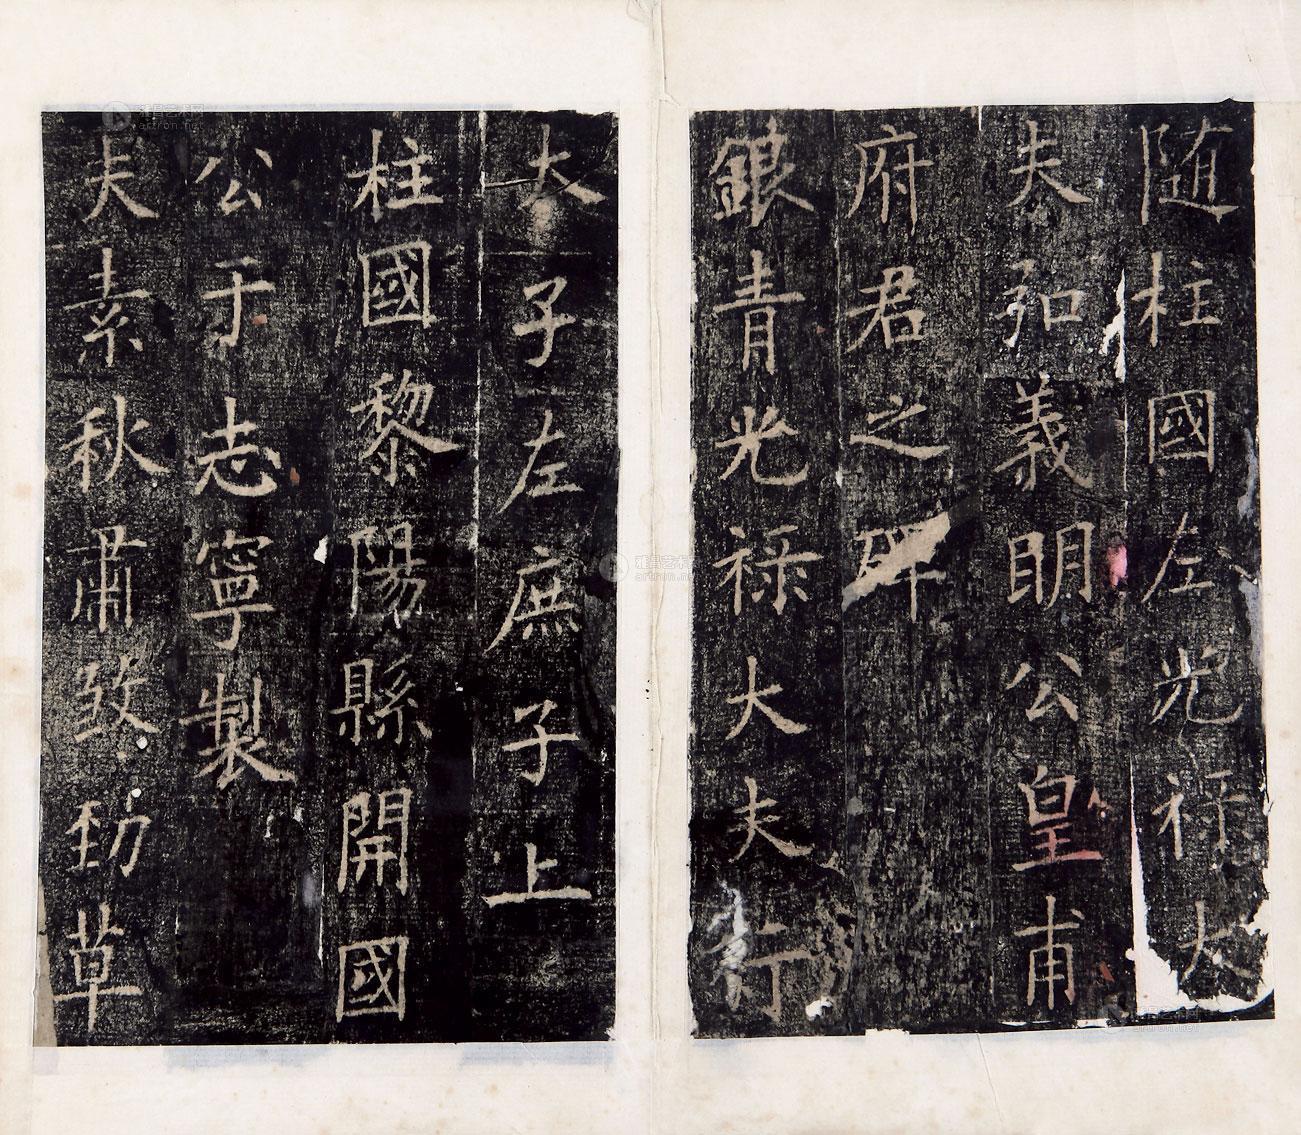 随柱國左光禄大
夫弘義明公皇甫
府君之碑
銀青光禄大夫行
太子左庶子上
柱國黎陽縣開國
公于志寧製
夫素秋肅致勁草
雅昌艺术网
artron.net